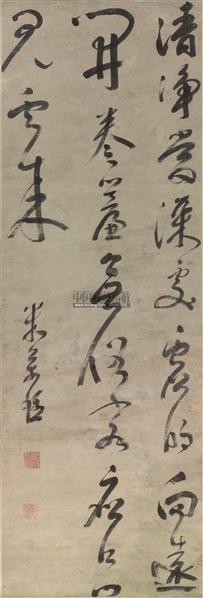 清淨當深處虛明向遠
開卷簾無俗客應只
見雲來
米萬鍾